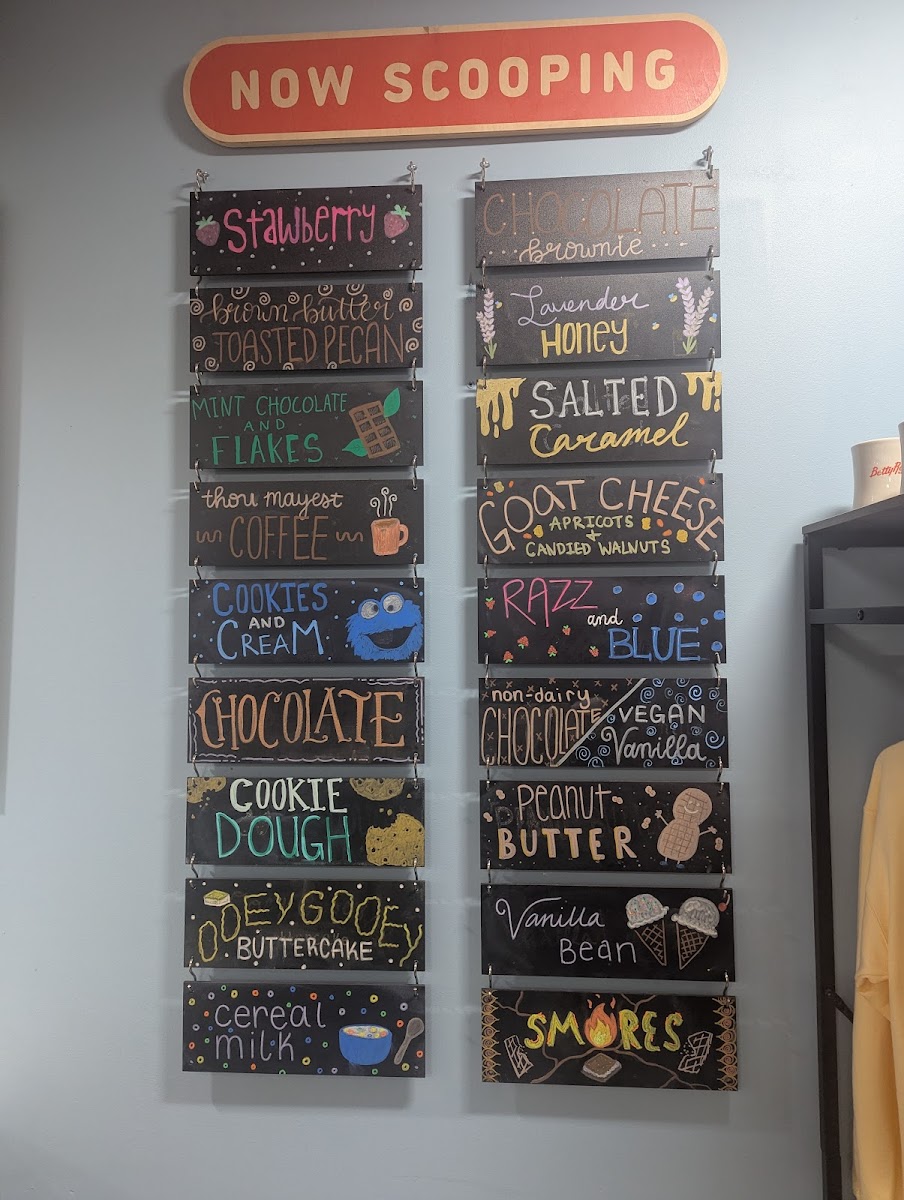 NOW SCOOPING
Stawberry
brown butter
TOASTED PECAN
MINT CHOCOLATE
AND
FLAKES
thou mayest
COFFEE
COOKIES
AND
CREAM
CHOCOLATE
COOKIE
DOUGH
OOEY GOOEY
BUTTERCAKE
cereal
milk
CHOCOLATE
brownie
Lavender
HONEY
SALTED
Caramel
GOAT CHEESE
APRICOTS
+
CANDIED WALNUTS
RAZZ
and
BLUE
non-dairy
CHOCOLATE
VEGAN
Vanilla
Peanut
BUTTER
Vanilla
Bean
SMORES